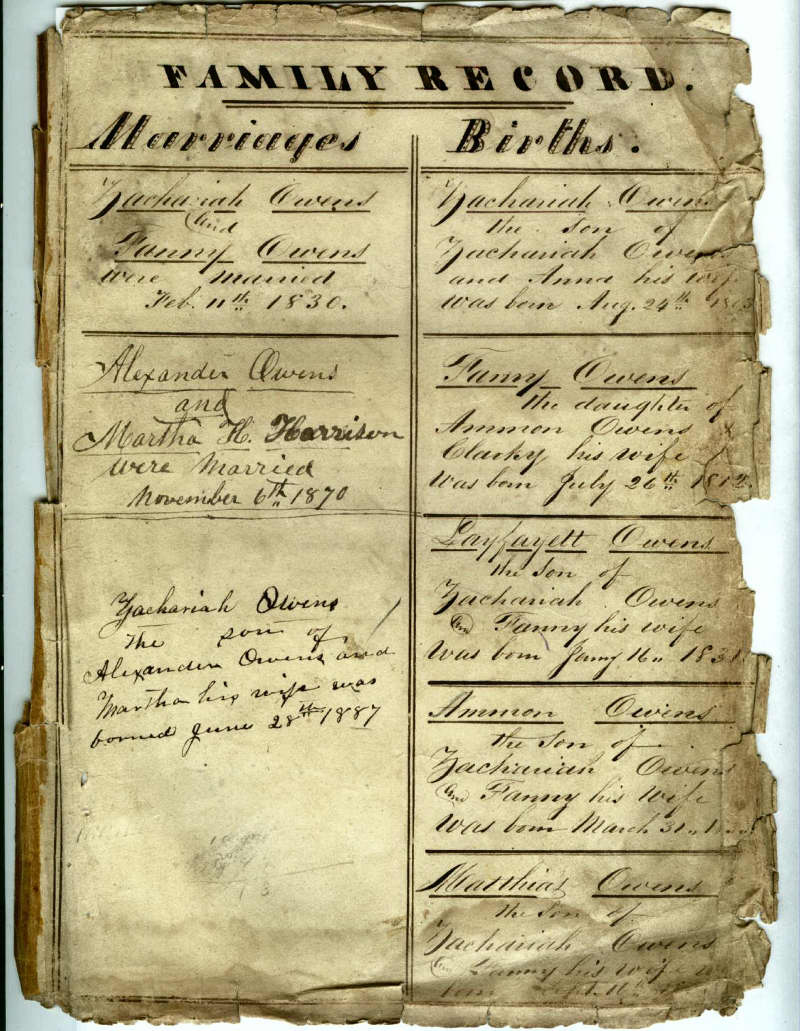 FAMILY RECORD.
Marriages
Zachariah Owens
and
Fanny Owens
were married
Feb. 11th 1830.
Alexander Owens
and
Martha H. Harrison
were Married
November 6th 1870
Zachariah Owens
The son of
Alexander Owens and
Martha his wife was
borned June 28th 1887
Births.
Zachariah Owens
the son of
Zachariah Owens
and Anna his wife
was born Aug. 24th
Fanny Owens
the daughter of
Ammon Owens &
Clarky his wife
was born July 26th 1812.
Layfayett Owens
the son of
Zachariah Owens
and Fanny his wife
was born Jany 16,, 1831
Ammon Owens
the son of
Zachariah Owens
and Fanny his wife
was born March 31,,
Matthias Owens
the son of
Zachariah Owens
and Fanny his wife
born Sept. 11th